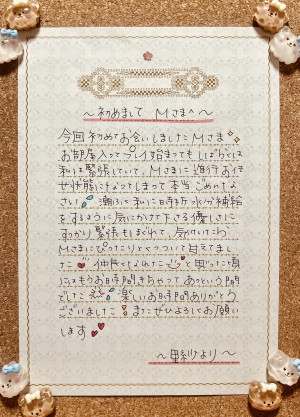 〜初めまして Mさまへ〜
今回初めてお会いしましたMさま
お部屋入ってプレイ始まってもしばらくは
私は緊張していて、Mさまに進行お任
せ状態になってしまって本当ごめんなさ
い 潮ふきに私に日時折水分補給
をするように気にかけて下さる優しさに
すっかり緊張もほぐれて、気付いたら
Mさまにぴったりとくっついて甘えてまし
た 仲良くなれた と思った頃
にはもうお時間きちゃってあっという間
でした 楽しいお時間ありがとう
ございました またぜひよろしくお願い
します
〜里紗より〜